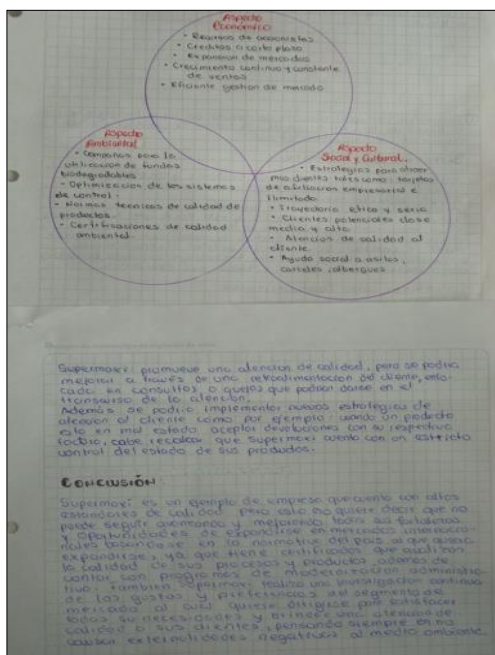 Aspecto
Económico
• Recursos de accionistas
• Creditos a corto plazo
• Expansion de mercados
• Crecimiento continuo y constante
de ventas
• Eficiente gestion de mercado
Aspecto
Ambiental
• Campañas para la
utilizacion de fundas
biodegradables
• Optimizacion de los sistemas
de control.
• Normas tecnicas de calidad de
productos.
• Certificaciones de calidad
ambiental.
Aspecto
Social y Cultural.
• Estrategias para atraer
mas clientes tales como: tarjetas
de afiliacion empresarial e
ilimitado
• Trayectoria etica y seria
• Clientes potenciales clase
media y alta
• Atencion de calidad al
cliente.
• Ayuda social a asilos,
carceles, albergues
Supermaxi: promueve una atencion de calidad, pero se podria
mejorar a traves de una retroalimentacion del cliente, enfo-
cada en consultas o quejas que podrian darse en el
transcurso de la atención.
Además se podria implementar nuevas estrategias de
atencion al cliente como por ejemplo: cuando un producto
este en mal estado aceptar devoluciones con su respectiva
factura, cabe recalcar que supermaxi cuenta con un estricto
control del estado de sus productos.
CONCLUSIÓN
Supermaxi es un ejemplo de empresa que cuenta con altos
estandares de calidad pero esto no quiere decir que no
puede seguir avanzando y mejorando todas sus fortalezas
y oportunidades de expandirse en mercados internacio-
nales basandose en la normativa del pais al que quiera
expandirse, ya que tiene certificados que acreditan
la calidad de sus procesos y productos, ademas de
contar con programas de modernizacion administra-
tivo. Tambien supermaxi realiza una investigacion continua
de los gustos y preferencias del segmento de
mercado al cual quiere dirigirse para satisfacer
todas su necesidades y brindar una atencion de
calidad a sus clientes, pensando siempre en no
causar externalidades negativas al medio ambiente.